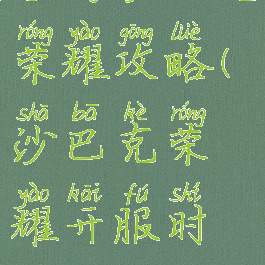 róng yào gōng lüè
荣耀攻略(
shā bā kè róng
沙巴克荣
yào kāi fú shí
耀开服时